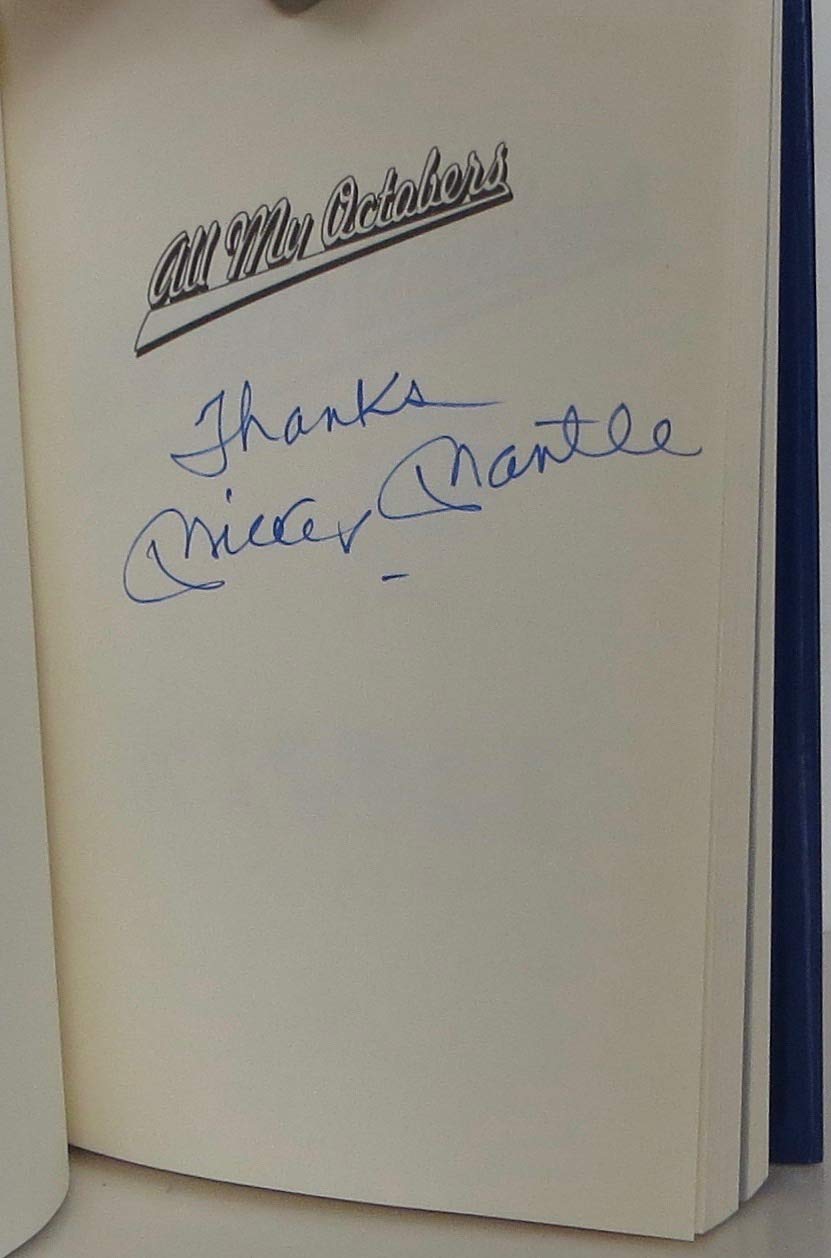 All My Octobers
Thanks
Mickey Mantle